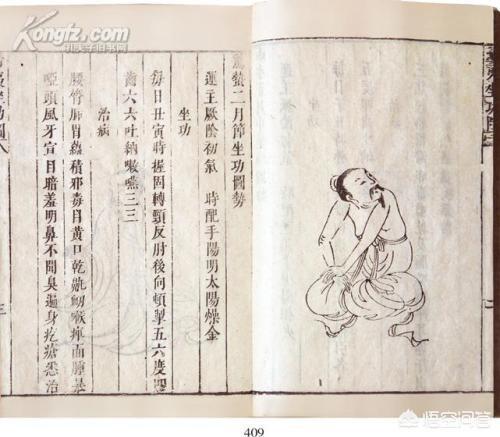 kongfz.com
孔夫子旧书网
驚蟄二月節坐功圖勢
運主厥陰初氣 時配手陽明太陽燥金
坐功
每日丑寅時握固轉頸反肘後向頓掣五六度叩
齒六六吐納漱嚥三三
治病
腰脊肺胃蘊積邪毒目黃口乾鼽衄喉痺面腫暴
啞頭風牙宣目暗羞明鼻不聞臭遍身疙瘩悉治
三
409
悟空问答